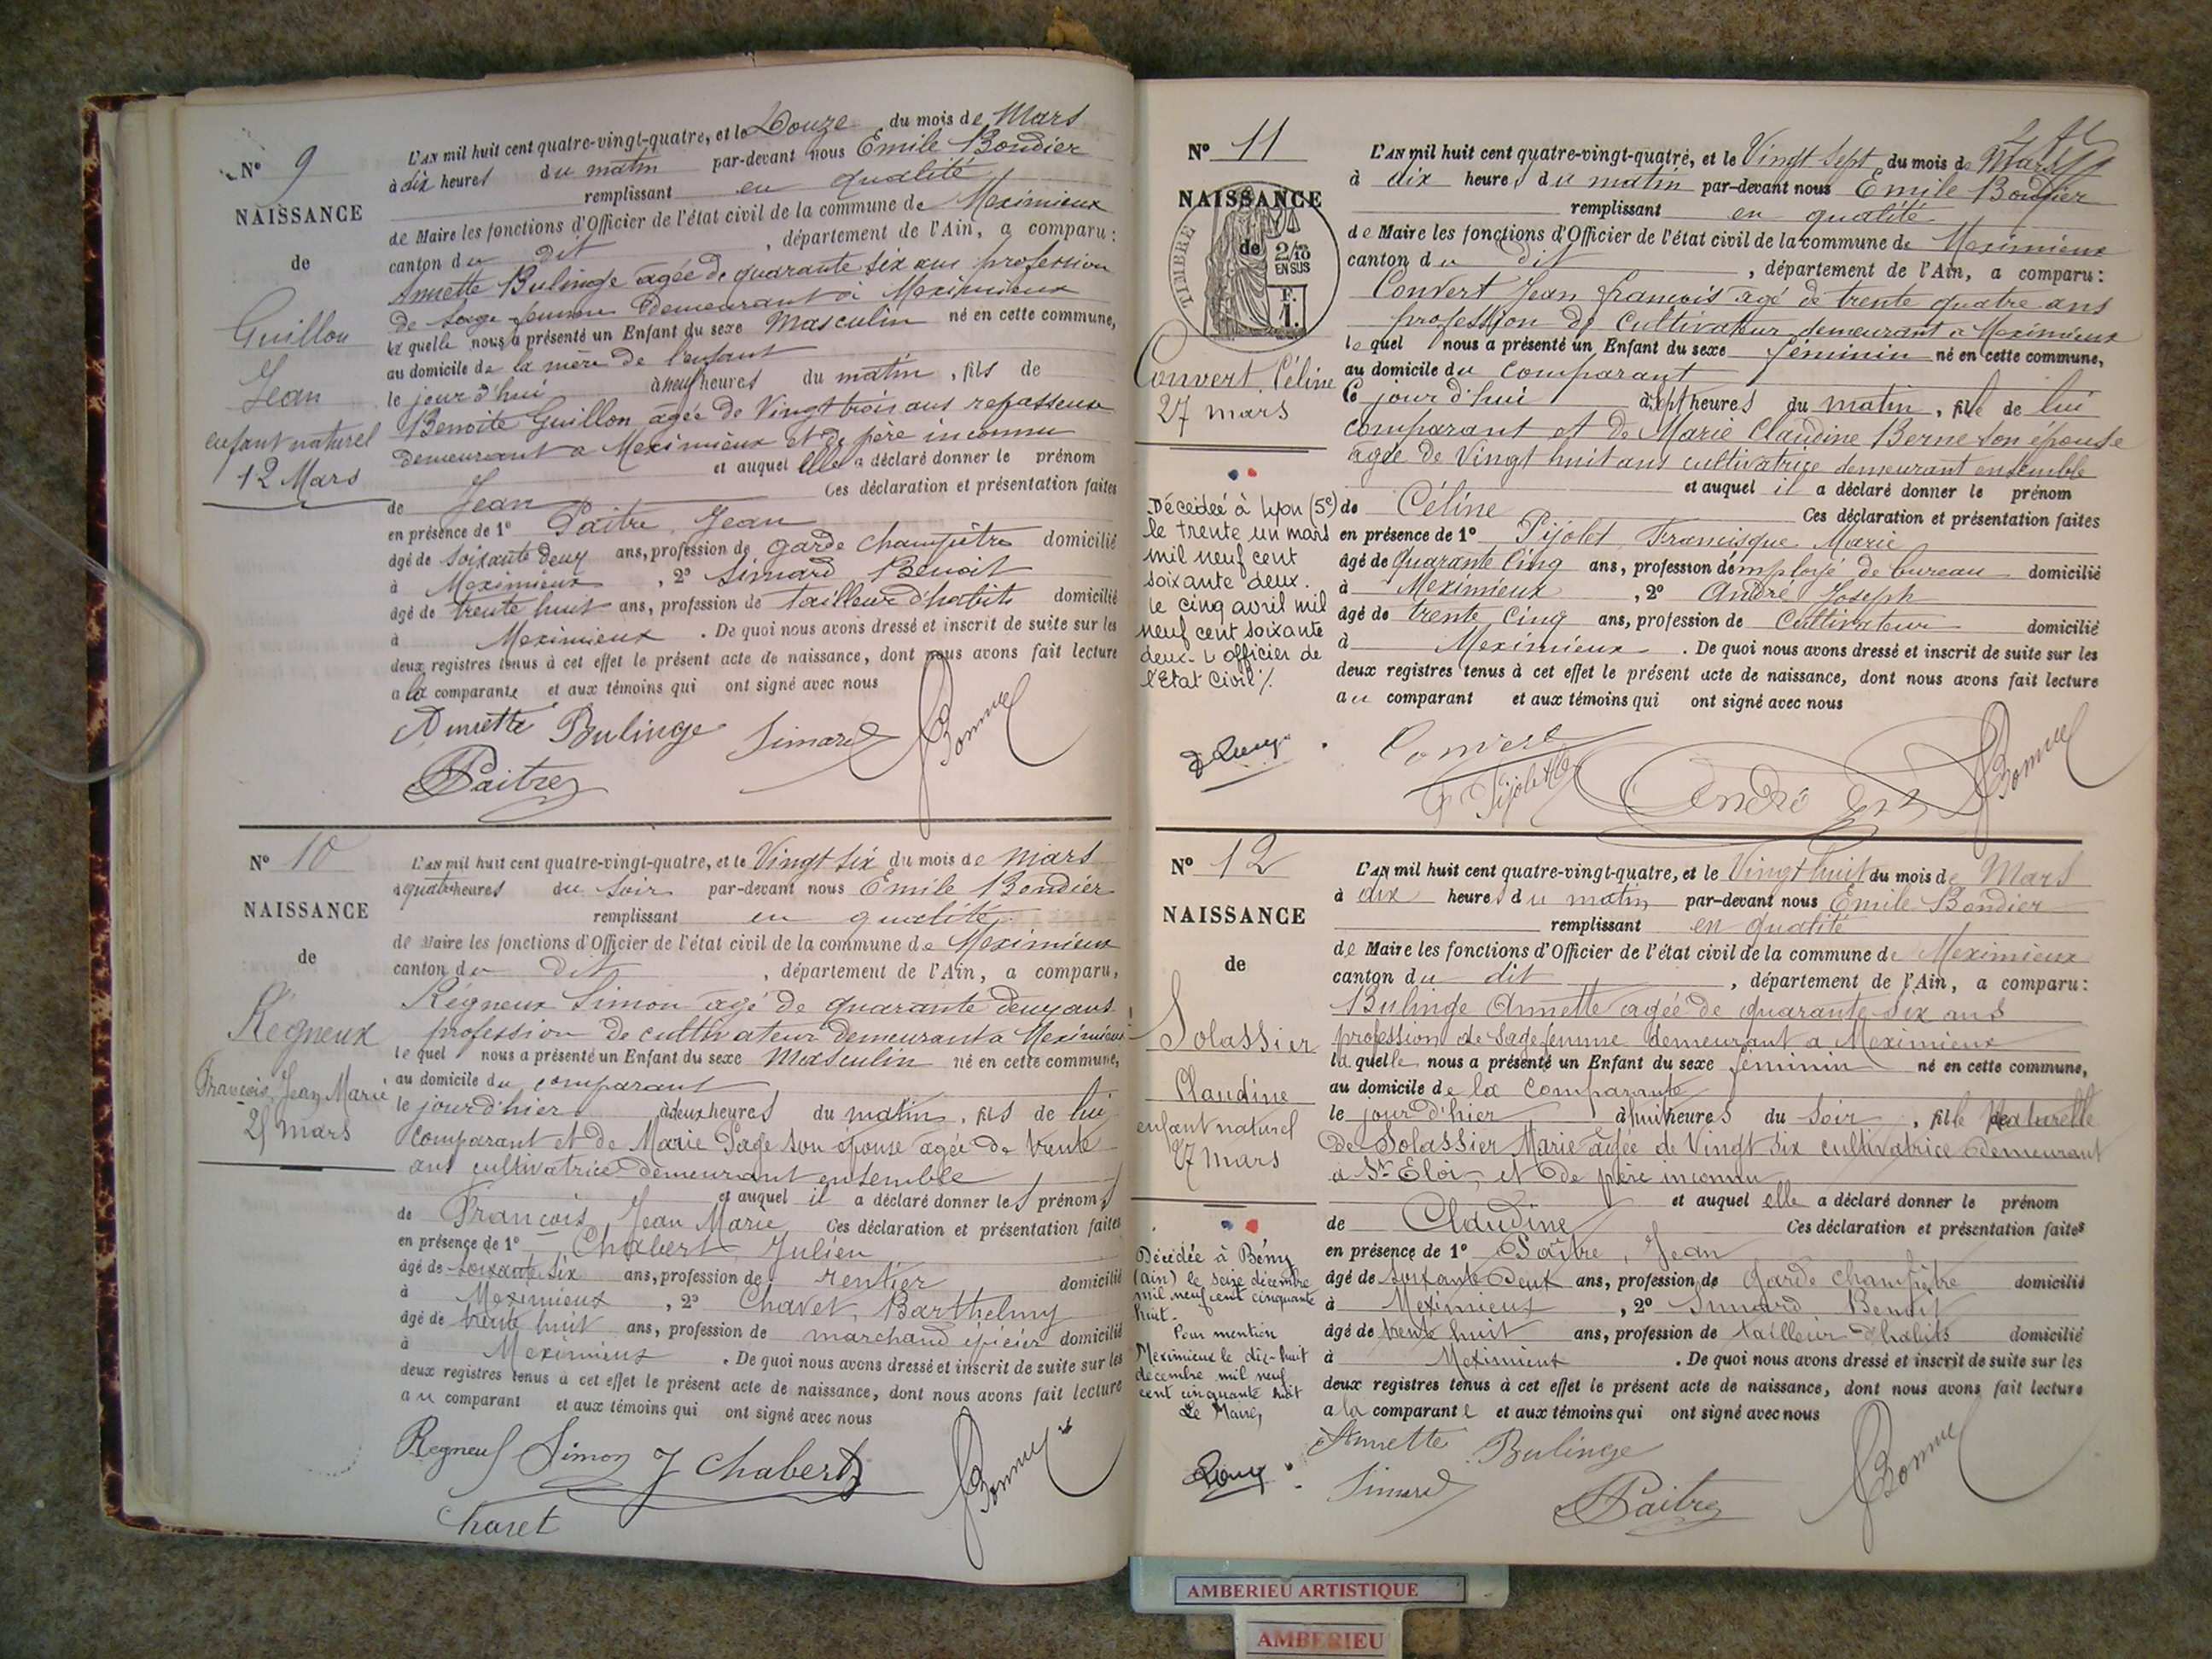 Nº 9
NAISSANCE
de
Guillon
Jean
enfant naturel
12 Mars
L'AN mil huit cent quatre-vingt-quatre, et le Douze du mois de Mars
à dix heures du matin par-devant nous Emile Bondier
remplissant en qualité
de Maire les fonctions d'Officier de l'état civil de la commune de Meximieux
canton du dit , département de l'Ain, a comparu :
Annette Bulinge agée de quarante six ans profession
de Sage femme demeurant à Meximieux
la quelle nous a présenté un Enfant du sexe Masculin né en cette commune,
au domicile de la mère de l'enfant
le jour d'hui à neuf heures du matin , fils de
Benoite Guillon agée de Vingt trois ans repasseuse
demeurant a Meximieux et de père inconnu
et auquel elle a déclaré donner le prénom
de Jean Ces déclaration et présentation faites
en présence de 1º Paitre Jean
âgé de soixante deux ans, profession de garde champêtre domicilié
à Meximieux , 2º Simard Benoit
âgé de trente huit ans, profession de tailleur d'habits domicilié
à Meximieux . De quoi nous avons dressé et inscrit de suite sur les
deux registres tenus à cet effet le présent acte de naissance, dont nous avons fait lecture
a la comparante et aux témoins qui ont signé avec nous
Annette Bulinge Simard
Paitre
Nº 10
NAISSANCE
de
Régneux
François Jean Marie
25 mars
L'AN mil huit cent quatre-vingt-quatre, et le Vingt six du mois de mars
à quatre heures du soir par-devant nous Emile Bondier
remplissant en qualité
de Maire les fonctions d'Officier de l'état civil de la commune de Meximieux
canton du Dit , département de l'Ain, a comparu,
Régneux Simon agé de quarante deux ans
profession de cultivateur demeurant a Meximieux
le quel nous a présenté un Enfant du sexe Masculin né en cette commune,
au domicile du comparant
le jour d'hier à deux heures du matin , fils de lui
comparant et de Marie Page son épouse agée de trente
ans cultivatrice demeurant ensemble
et auquel il a déclaré donner les prénoms
de François Jean Marie Ces déclaration et présentation faites
en présence de 1º Chabert Julien
âgé de soixante six ans, profession de rentier domicilié
à Meximieux , 2º Chavet, Barthelmy
âgé de trente huit ans, profession de marchand épicier domicilié
à Meximieux . De quoi nous avons dressé et inscrit de suite sur les
deux registres tenus à cet effet le présent acte de naissance, dont nous avons fait lecture
au comparant et aux témoins qui ont signé avec nous
Simon J Chabert
Nº 11
NAISSANCE
de
TIMBRE
2/10
EN SUS
F.
1.
Convert Céline
27 mars
Décédée à Lyon (5e)
le trente un mars
mil neuf cent
soixante deux.
le cinq avril mil
neuf cent soixante
deux. L'officier de
l'Etat Civil ./.
L'AN mil huit cent quatre-vingt-quatre, et le Vingt sept du mois de Mars
à dix heures du matin par-devant nous Emile Bondier
remplissant en qualité
de Maire les fonctions d'Officier de l'état civil de la commune de Meximieux
canton du Dit , département de l'Ain, a comparu :
Convert Jean françois agé de trente quatre ans
profession de Cultivateur demeurant a Meximieux
le quel nous a présenté un Enfant du sexe féminin né en cette commune,
au domicile du comparant
Ce jour d'hui à sept heures du matin , fille de lui
comparant et de Marie Claudine Berne son épouse
agée de Vingt huit ans cultivatrice demeurant ensemble
et auquel il a déclaré donner le prénom
de Céline Ces déclaration et présentation faites
en présence de 1º Pijolet Francisque Marie
âgé de Quarante Cinq ans, profession d'employé de bureau domicilié
à Meximieux , 2º André Joseph
âgé de trente Cinq ans, profession de Cultivateur domicilié
à Meximieux . De quoi nous avons dressé et inscrit de suite sur les
deux registres tenus à cet effet le présent acte de naissance, dont nous avons fait lecture
au comparant et aux témoins qui ont signé avec nous
Convert
André
Nº 12
NAISSANCE
de
Solassier
Claudine
enfant naturel
27 mars
Décédée à Bény
(ain) le seize décembre
mil neuf cent cinquante
huit.
Pour mention
Meximieux le dix-huit
décembre mil neuf
cent cinquante huit
Le Maire,
L'AN mil huit cent quatre-vingt-quatre, et le Vingt huit du mois de Mars
à dix heures du matin par-devant nous Emile Bondier
remplissant en qualité
de Maire les fonctions d'Officier de l'état civil de la commune de Meximieux
canton du dit , département de l'Ain, a comparu :
Bulinge Annette agée de quarante six ans
profession de Sage femme demeurant a Meximieux
la quelle nous a présenté un Enfant du sexe féminin né en cette commune,
au domicile de la Comparante
le jour d'hier à huit heures du soir , fille naturelle
de Solassier Marie agée de Vingt six cultivatrice demeurant
a St Eloi, et de père inconnu
et auquel elle a déclaré donner le prénom
de Claudine Ces déclaration et présentation faites
en présence de 1º Paitre, Jean
âgé de soixante deux ans, profession de Garde champêtre domicilié
à Meximieux , 2º Simard Benoit
âgé de trente huit ans, profession de tailleur d'habits domicilié
à Meximieux . De quoi nous avons dressé et inscrit de suite sur les
deux registres tenus à cet effet le présent acte de naissance, dont nous avons fait lecture
a la comparante et aux témoins qui ont signé avec nous
Annette Bulinge
Simard Paitre
AMBERIEU ARTISTIQUE
AMBERIEU